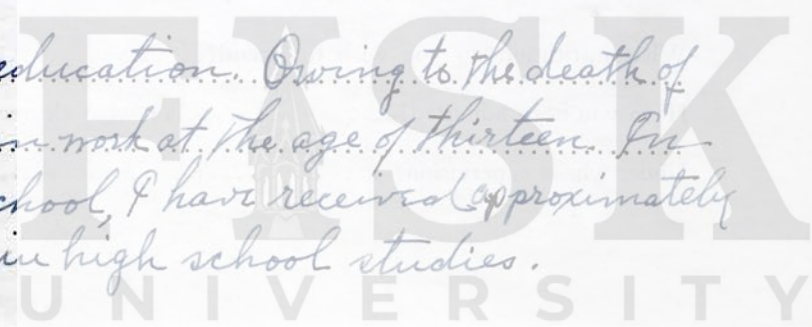 education. Owing to the death of
work at the age of thirteen. In
school, I have received approximately
in high school studies.
FISK
UNIVERSITY